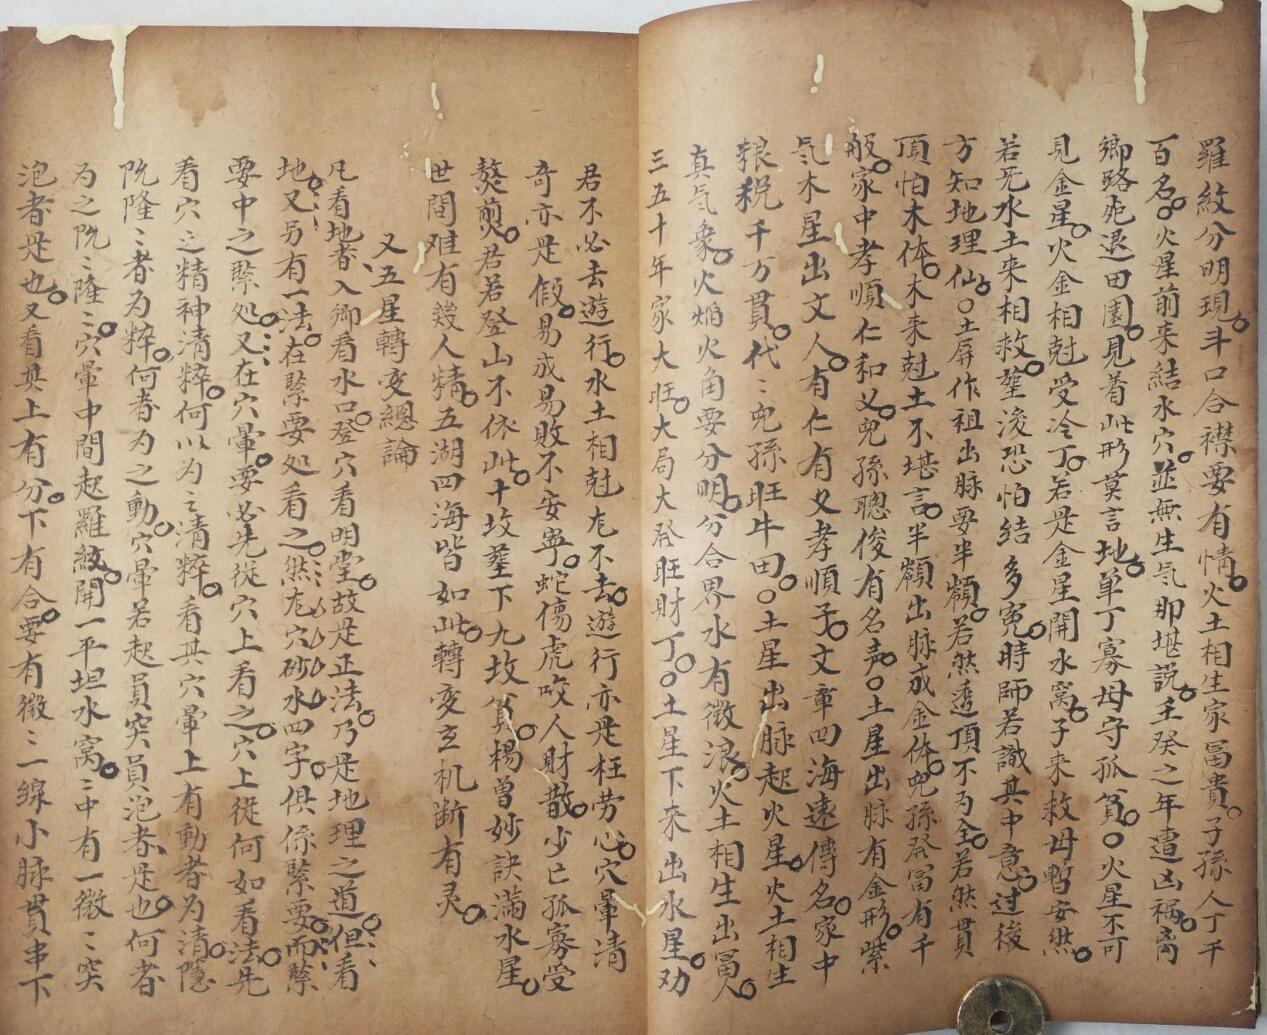 羅紋分明現。斗口合襟要有情。火土相生家冨貴。子孫人丁千
百名。火星前来結水穴。並無生气那堪説。壬癸之年遭凶禍。离
鄉路死退田園。見着此形莫言地。单丁寡母守孤貧。○火星不可
見金星。火金相尅受冷丁。若是金星開水窝。子来救母暫安然。
若无水土来相救。葬後恐怕結多冤。時師若識其中意。过後
方知地理仙。○土屏作祖出脉要半顙。若然透頂不为全。若然貫
頂怕木体。木来尅土不堪言。半顙出脉成金体。兒孫発冨有千
般。家中孝順仁和义。兒孫聰俊有名声。○土星出脉有金形。紫
气木星出文人。有仁有义孝順子。文章四海遠傳名。家中
粮税千万貫。代〻兒孫旺牛田。○土星出脉起火星。火土相生
真气象。火焰火角要分明。分合界水有微浪。火土相生出冨人。
三五十年家大旺。大局大発旺財丁。○土星下来出水星。劝
君不必去遊行。水土相尅尨不去。遊行亦是枉劳心。穴暈清
奇亦是假。易成易敗不安寧。蛇傷虎咬人財散。少亡孤寡受
熬煎。君若登山不依此。十坟塟下九坟貧。楊曾妙訣滿水星。
世間难有幾人精。五湖四海皆如此。轉变玄机断有灵。
又五星轉变總論
凡看地者、入鄉看水口。登穴看明堂。故是正法。乃是地理之道。但看
地又另有一法。在緊要処看之。然尨穴砂水四字。俱係緊要。而緊
要中之緊処。又在穴暈。要必先從穴上看之。穴上從何如看法。先
看穴之精神清粹。何以为之清粹。看其穴暈上有動者为清。隱
阮隆〻者为粹。何者为之動。穴暈若起員突員泡者、是也。何者
为之阮〻隆〻。穴暈中間起羅紋。開一平坦水窝。〻中有一微〻突
泡者是也。又看其上有分。下有合。要有微〻一線小脉貫串下